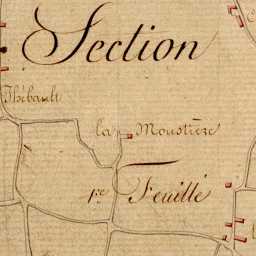 Section
Thébault
la Moustière
1re Feuille